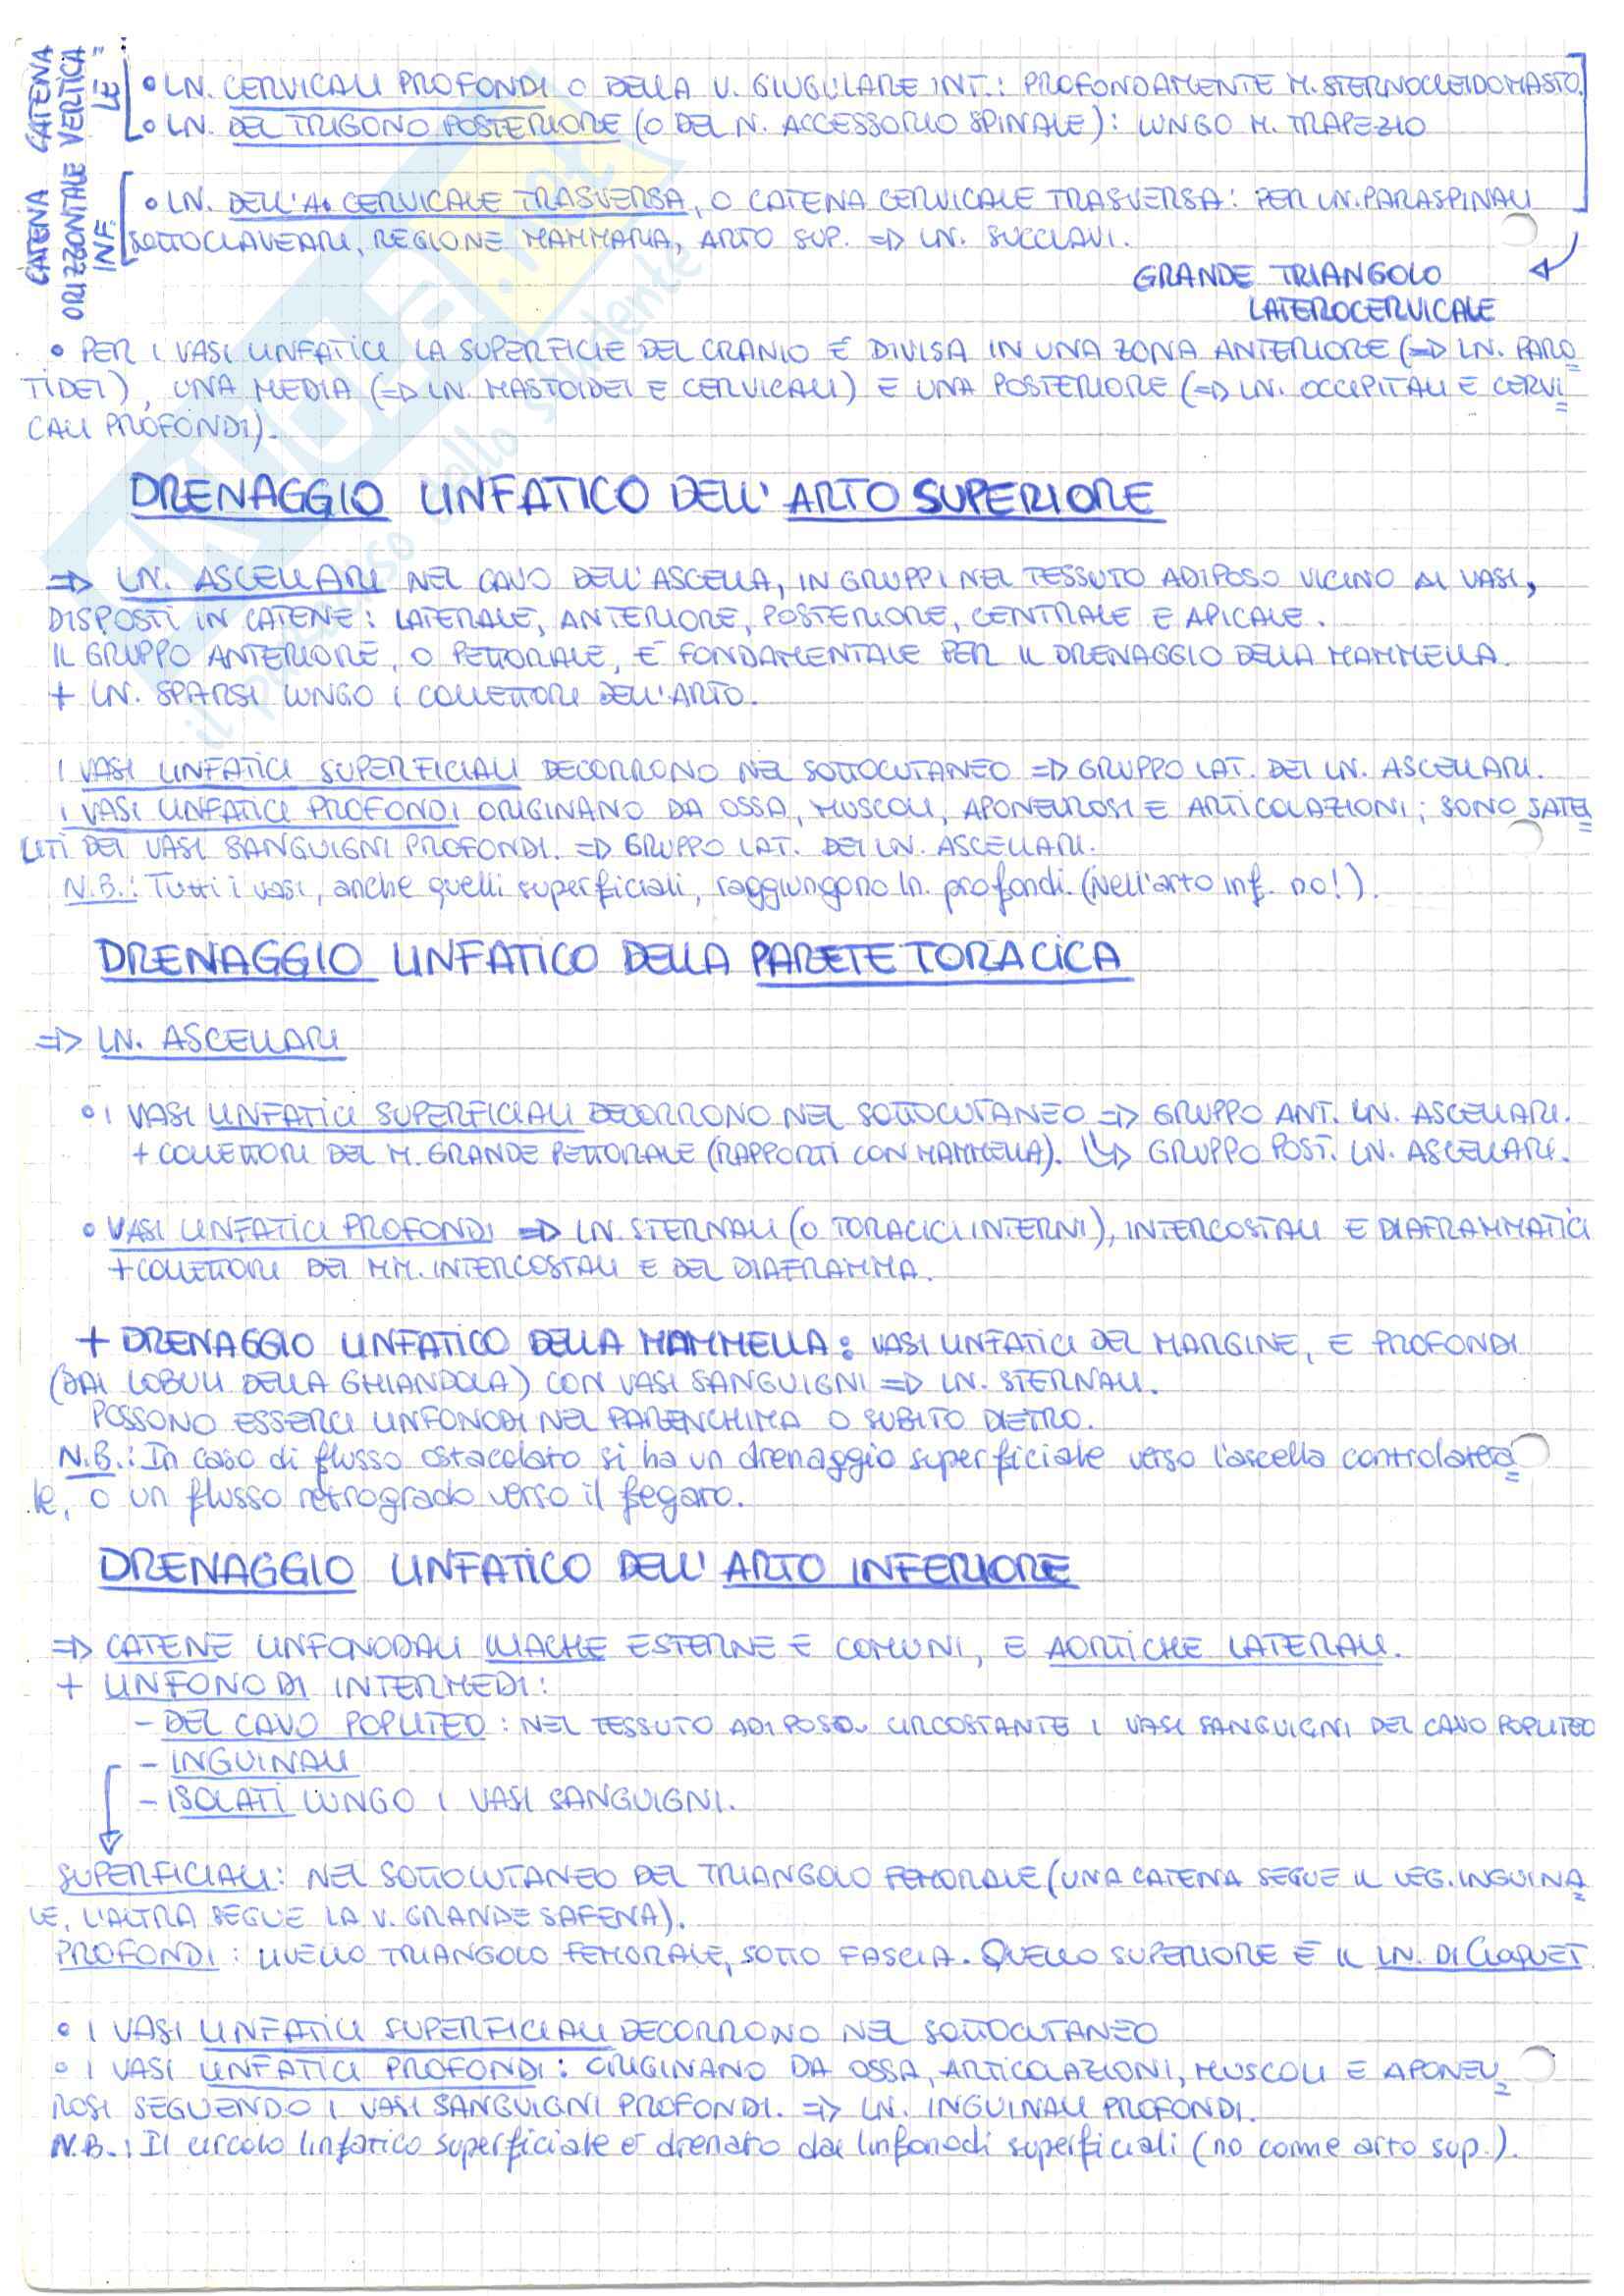 CATENA VERTICA=
LE
• LN. CERVICALI PROFONDI O DELLA V. GIUGULARE INT.: PROFONDAMENTE M. STERNOCLEIDOMASTO.
• LN. DEL TRIGONO POSTERIORE (O DEL N. ACCESSORIO SPINALE): LUNGO M. TRAPEZIO
CATENA ORIZZONTALE
INF.
• LN. DELL'A. CERVICALE TRASVERSA, O CATENA CERVICALE TRASVERSA: PER LN. PARASPINALI
SOTTOCLAVEARI, REGIONE MAMMARIA, ARTO SUP. => LN. SUCCLAVI.
GRANDE TRIANGOLO
LATEROCERVICALE
• PER I VASI LINFATICI LA SUPERFICIE DEL CRANIO È DIVISA IN UNA ZONA ANTERIORE (=> LN. PARO=
TIDEI), UNA MEDIA (=> LN. MASTOIDEI E CERVICALI) E UNA POSTERIORE (=> LN. OCCIPITALI E CERVI=
CALI PROFONDI).
DRENAGGIO LINFATICO DELL'ARTO SUPERIORE
=> LN. ASCELLARI NEL CAVO DELL'ASCELLA, IN GRUPPI NEL TESSUTO ADIPOSO VICINO AI VASI,
DISPOSTI IN CATENE: LATERALE, ANTERIORE, POSTERIORE, CENTRALE E APICALE.
IL GRUPPO ANTERIORE, O PETTORALE, È FONDAMENTALE PER IL DRENAGGIO DELLA MAMMELLA.
+ LN. SPARSI LUNGO I COLLETTORI DELL'ARTO.
I VASI LINFATICI SUPERFICIALI DECORRONO NEL SOTTOCUTANEO => GRUPPO LAT. DEI LN. ASCELLARI.
I VASI LINFATICI PROFONDI ORIGINANO DA OSSA, MUSCOLI, APONEUROSI E ARTICOLAZIONI; SONO SATEL=
LITI DEI VASI SANGUIGNI PROFONDI. => GRUPPO LAT. DEI LN. ASCELLARI.
N.B.: Tutti i vasi, anche quelli superficiali, raggiungono ln. profondi. (Nell'arto inf. no!).
DRENAGGIO LINFATICO DELLA PARETE TORACICA
=> LN. ASCELLARI
• I VASI LINFATICI SUPERFICIALI DECORRONO NEL SOTTOCUTANEO => GRUPPO ANT. LN. ASCELLARI.
+ COLLETTORI DEL M. GRANDE PETTORALE (RAPPORTI CON MAMMELLA). => GRUPPO POST. LN. ASCELLARI.
• VASI LINFATICI PROFONDI => LN. STERNALI (O TORACICI INTERNI), INTERCOSTALI E DIAFRAMMATICI
+ COLLETTORI DEI MM. INTERCOSTALI E DEL DIAFRAMMA.
+ DRENAGGIO LINFATICO DELLA MAMMELLA: VASI LINFATICI DEL MARGINE, E PROFONDI
(DAI LOBULI DELLA GHIANDOLA) CON VASI SANGUIGNI => LN. STERNALI.
POSSONO ESSERCI LINFONODI NEL PARENCHIMA O SUBITO DIETRO.
N.B.: In caso di flusso ostacolato si ha un drenaggio superficiale verso l'ascella controlatera=
le, o un flusso retrogrado verso il fegato.
DRENAGGIO LINFATICO DELL'ARTO INFERIORE
=> CATENE LINFONODALI ILIACHE ESTERNE E COMUNI, E AORTICHE LATERALI.
+ LINFONODI INTERMEDI:
- DEL CAVO POPLITEO: NEL TESSUTO ADIPOSO CIRCOSTANTE I VASI SANGUIGNI DEL CAVO POPLITEO
- INGUINALI
- ISOLATI LUNGO I VASI SANGUIGNI.
SUPERFICIALI: NEL SOTTOCUTANEO DEL TRIANGOLO FEMORALE (UNA CATENA SEGUE IL LEG. INGUINA=
LE, L'ALTRA SEGUE LA V. GRANDE SAFENA).
PROFONDI: LIVELLO TRIANGOLO FEMORALE, SOTTO FASCIA. QUELLO SUPERIORE È IL LN. DI CLOQUET
• I VASI LINFATICI SUPERFICIALI DECORRONO NEL SOTTOCUTANEO
• I VASI LINFATICI PROFONDI: ORIGINANO DA OSSA, ARTICOLAZIONI, MUSCOLI E APONEU=
ROSI SEGUENDO I VASI SANGUIGNI PROFONDI. => LN. INGUINALI PROFONDI.
N.B.: Il circolo linfatico superficiale è drenato dai linfonodi superficiali (no come arto sup.).